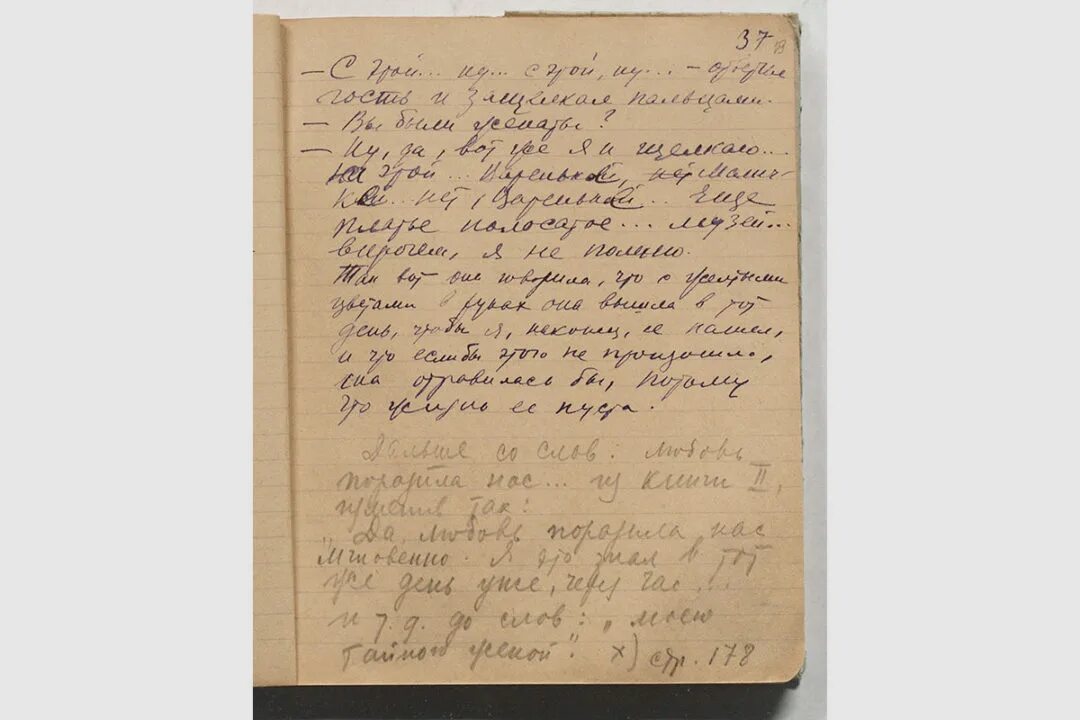 37
— С этой... ну... с этой, ну... — ответил
гость и защелкал пальцами.
— Вы были женаты?
— Ну, да, вот же я и щелкаю...
На этой... Вареньке, нет Манеч-
ке... нет, Вареньке... Еще
платье полосатое... музей...
впрочем, я не помню.
Так вот она говорила, что с желтыми
цветами в руках она вышла в тот
день, чтобы я, наконец, ее нашел,
и что если бы этого не произошло,
она отравилась бы, потому
что жизнь ее пуста.
Дальше со слов: любовь
поразила нас... из книги II,
изменив так:
„Да, любовь поразила нас
мгновенно. Я это знал в тот
же день уже, через час...
и т.д. до слов: „моею
тайною женой". х) стр. 178